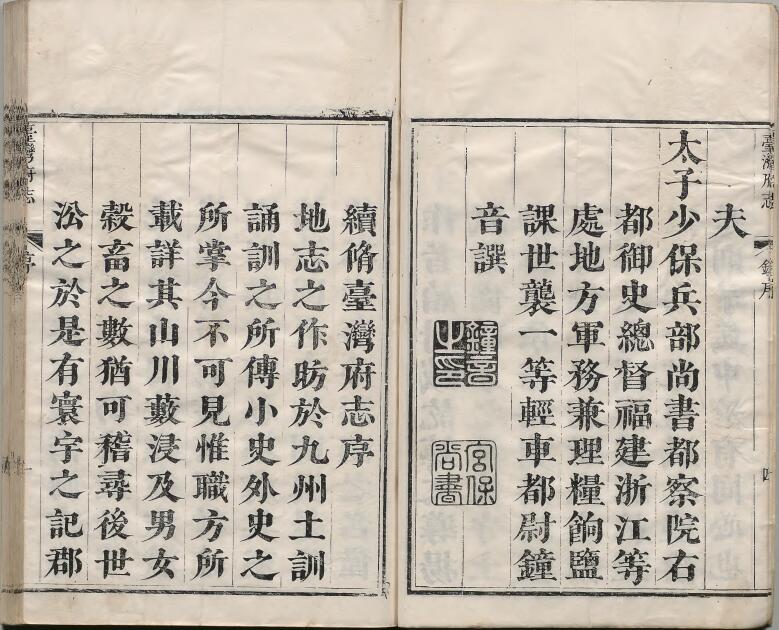 臺灣府志
鐘序
四
夫
太子少保兵部尚書都察院右
都御史總督福建浙江等
處地方軍務兼理糧餉鹽
課世襲一等輕車都尉鐘
音譔
鐘音之印
宮保尚書
續脩臺灣府志序
地志之作昉於九州土訓
誦訓之所傳小史外史之
所掌今不可見惟職方所
載詳其山川藪浸及男女
穀畜之數猶可稽尋後世
㳂之於是有寰宇之記郡
臺灣府志
序